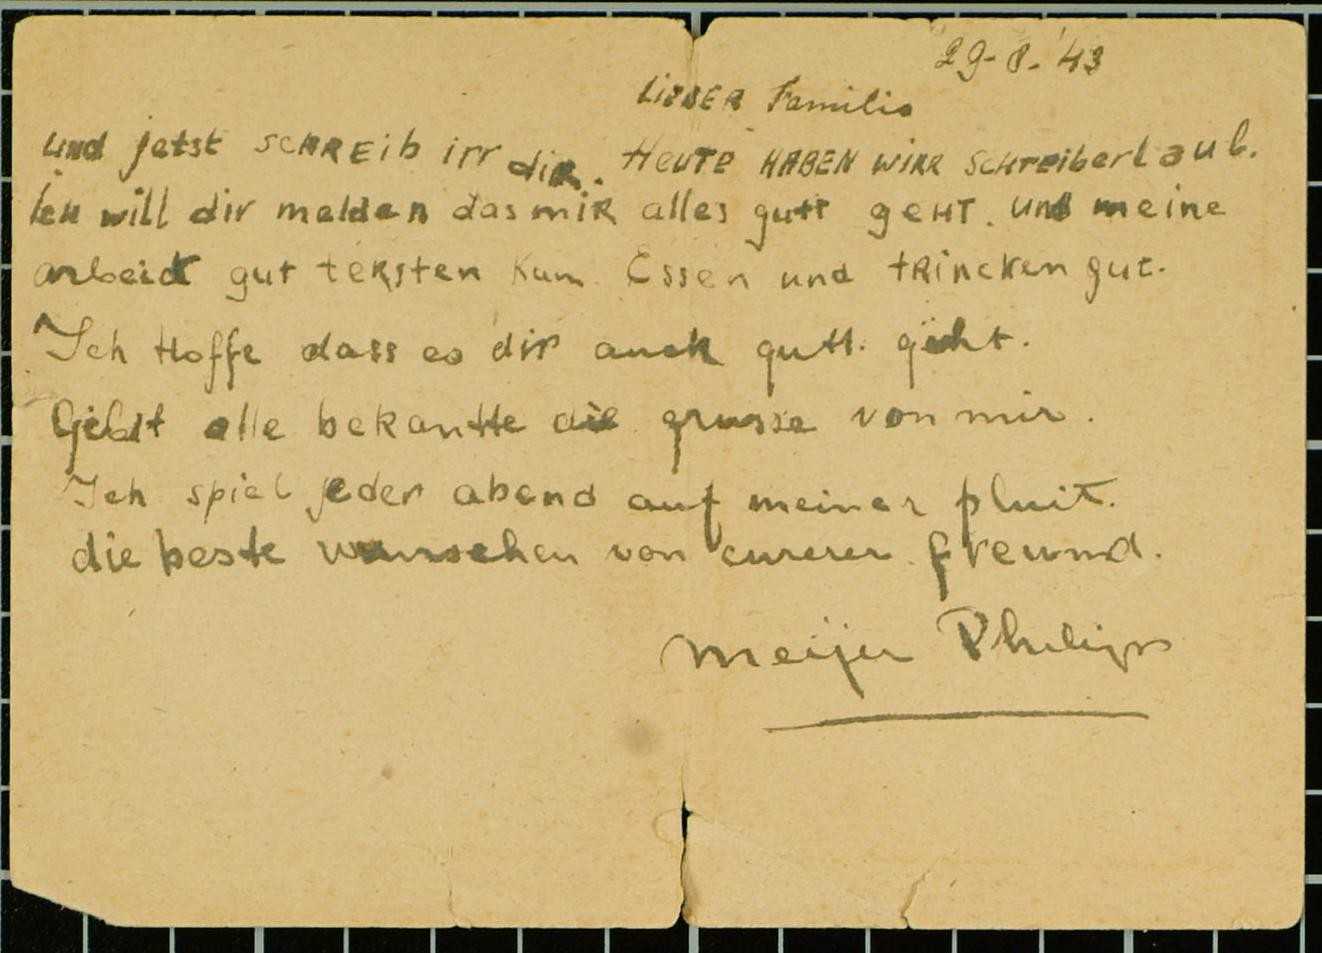 29-8-'43
LiEBER Familie
und jetst SCHREib irr diR. HEUTE HABEN WIRR SCHreiberlaub.
ich will dir melden das miR alles gutt geHT. und meine
arbeid gut teksten kum Essen und tRincken gut.
Ich Hoffe dass es dir auch gutt. geht.
Gebt alle bekantte die grusse von mir.
Ich spiel jeder abend auf meiner pluit.
die beste wunschen von eurerer freund.
Meijer Philips